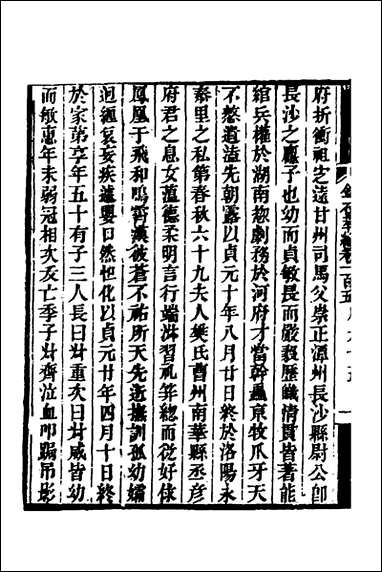 府折衝祖志遠甘州司馬父崇正潭州長沙縣尉公卽
長沙之廌子也幼而貞敏長而嚴毅歷職清貫皆著能
綰兵權於湖南惣劇務於河府才當幹蠱京牧爪牙天
不憗遺溘先朝露以貞元十年八月廿日終於洛陽永
泰里之私第春秋六十九夫人樊氏曹州南華縣丞彥
府君之息女蕰德柔明言行端淑習礼笄緫而從好俅
鳳凰于飛和鳴霄漢彼蒼不祐所天先逝撫訓孤幼孀
迥緬哀妄疾遽嬰日然怛化以貞元廿年四月十日終
於家第享年五十有子三人長曰叔重次曰叔咸皆幼
而敏惠年未弱冠相次亥亡季子叔齊泣血叩蹋吊影